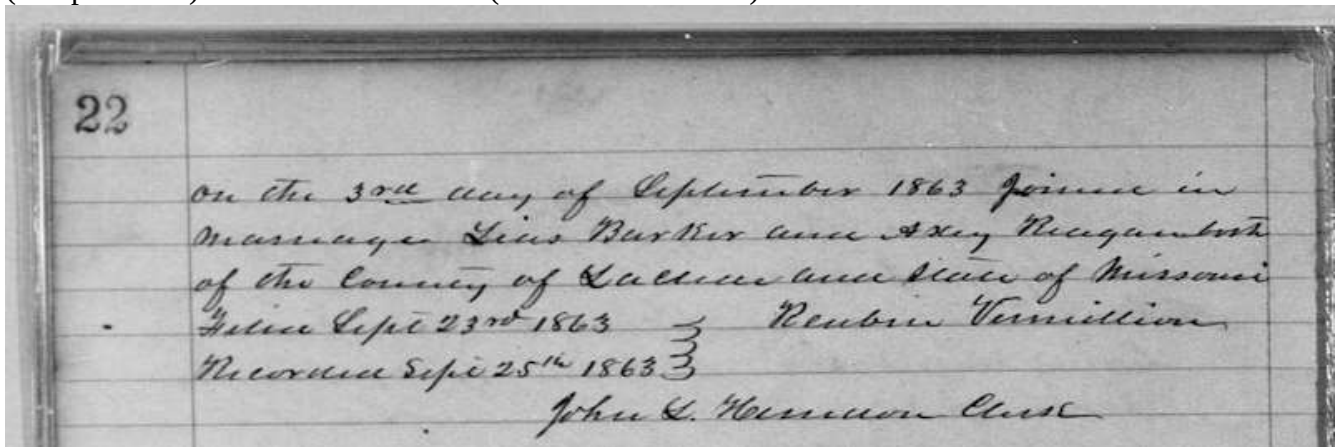 22
on the 3rd day of September 1863 Joined in
marriage Lias Barker and Axey Reagan both
of the County of Laclede and State of Missouri
Filed Sept 23rd 1863 Reubin Vermillion
Recorded Sept 25th 1863
John L. Clerk